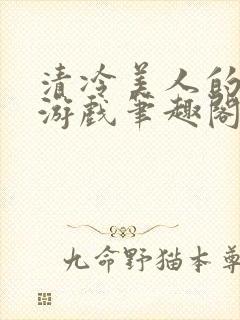 清冷美人的
游戏笔趣阁
九命野猫本尊